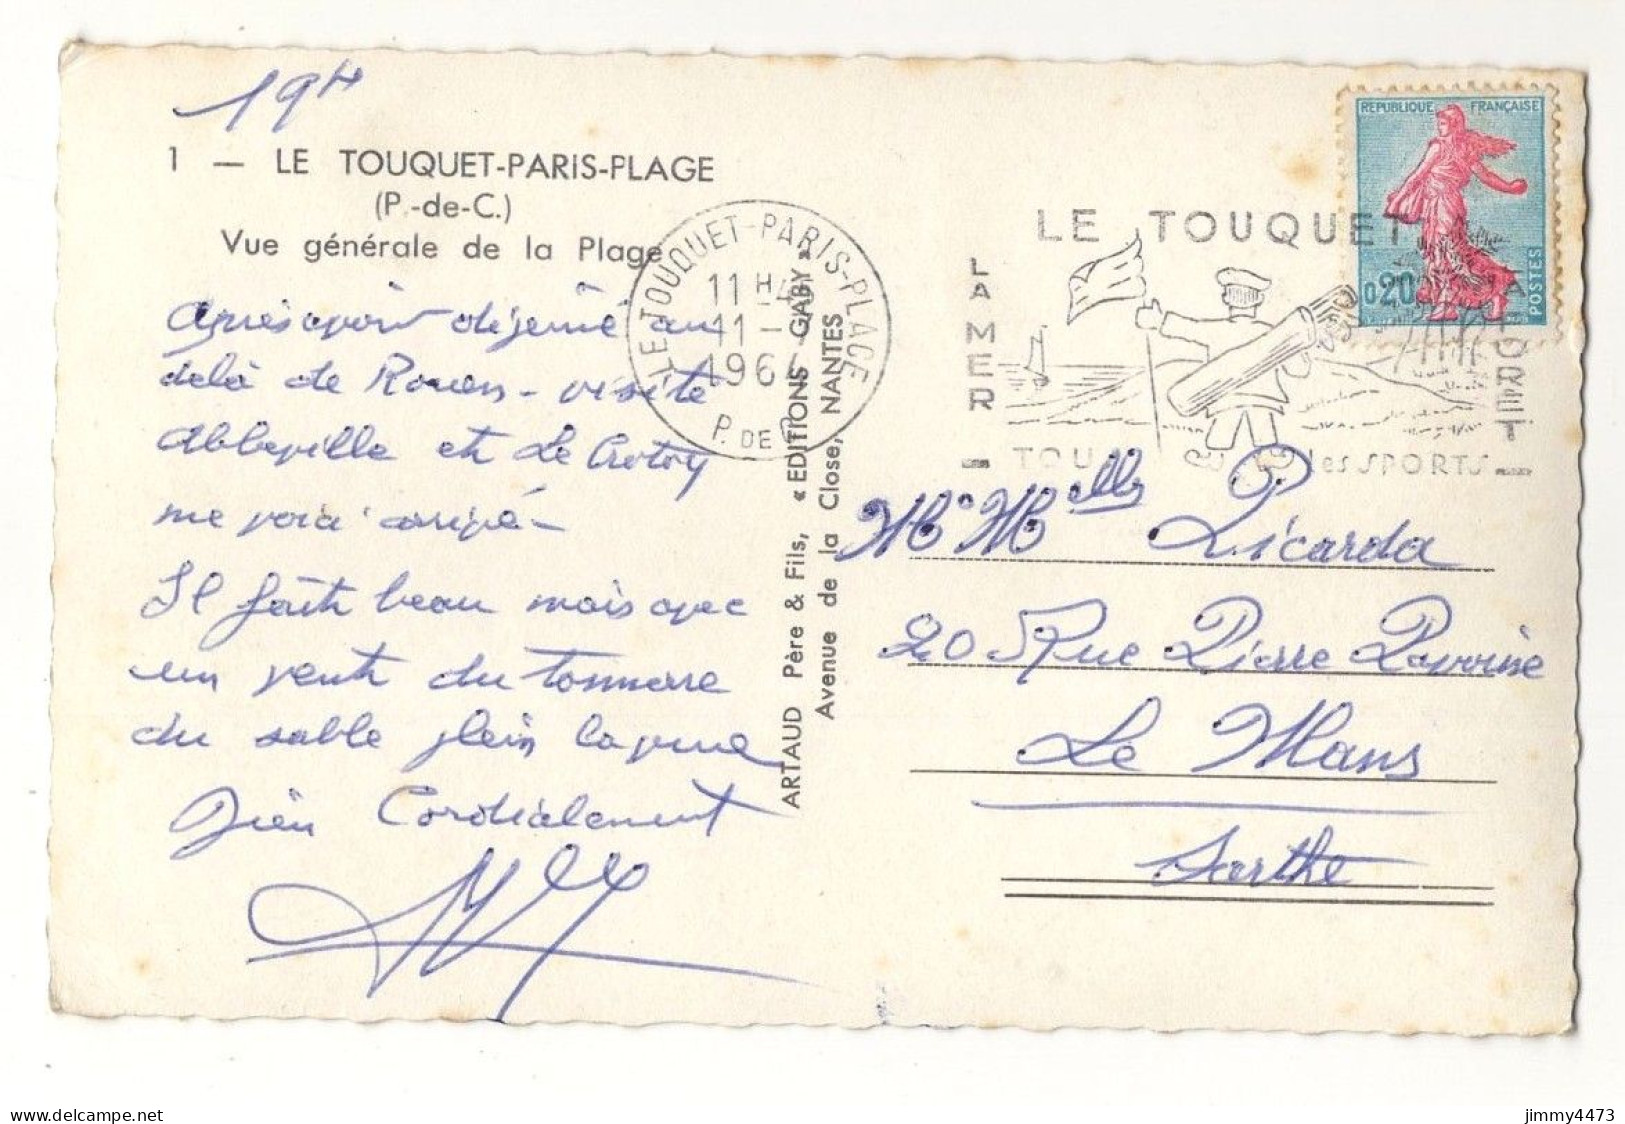 19H
1 — LE TOUQUET-PARIS-PLAGE
(P.-de-C.)
Vue générale de la Plage
Après avoir déjeuné au
delà de Rouen - visité
Abbeville et Le Crotoy
me voici arrivé -
Il fait beau mais avec
un vent du tonnerre
du sable plein la gueule
Bien Cordialement
LE TOUQUET-PARIS-PLAGE
11 H
11 -
196
P. DE C.
ARTAUD Père & Fils, « EDITIONS GABY »
Avenue de la Close, NANTES
REPUBLIQUE FRANÇAISE
0,20
POSTES
LE TOUQUET
LA MER
LA FORET
TOUS les SPORTS
M. Melle Picarda
20 Rue Pierre
Le Mans
Sarthe
jimmy4473
www.delcampe.net